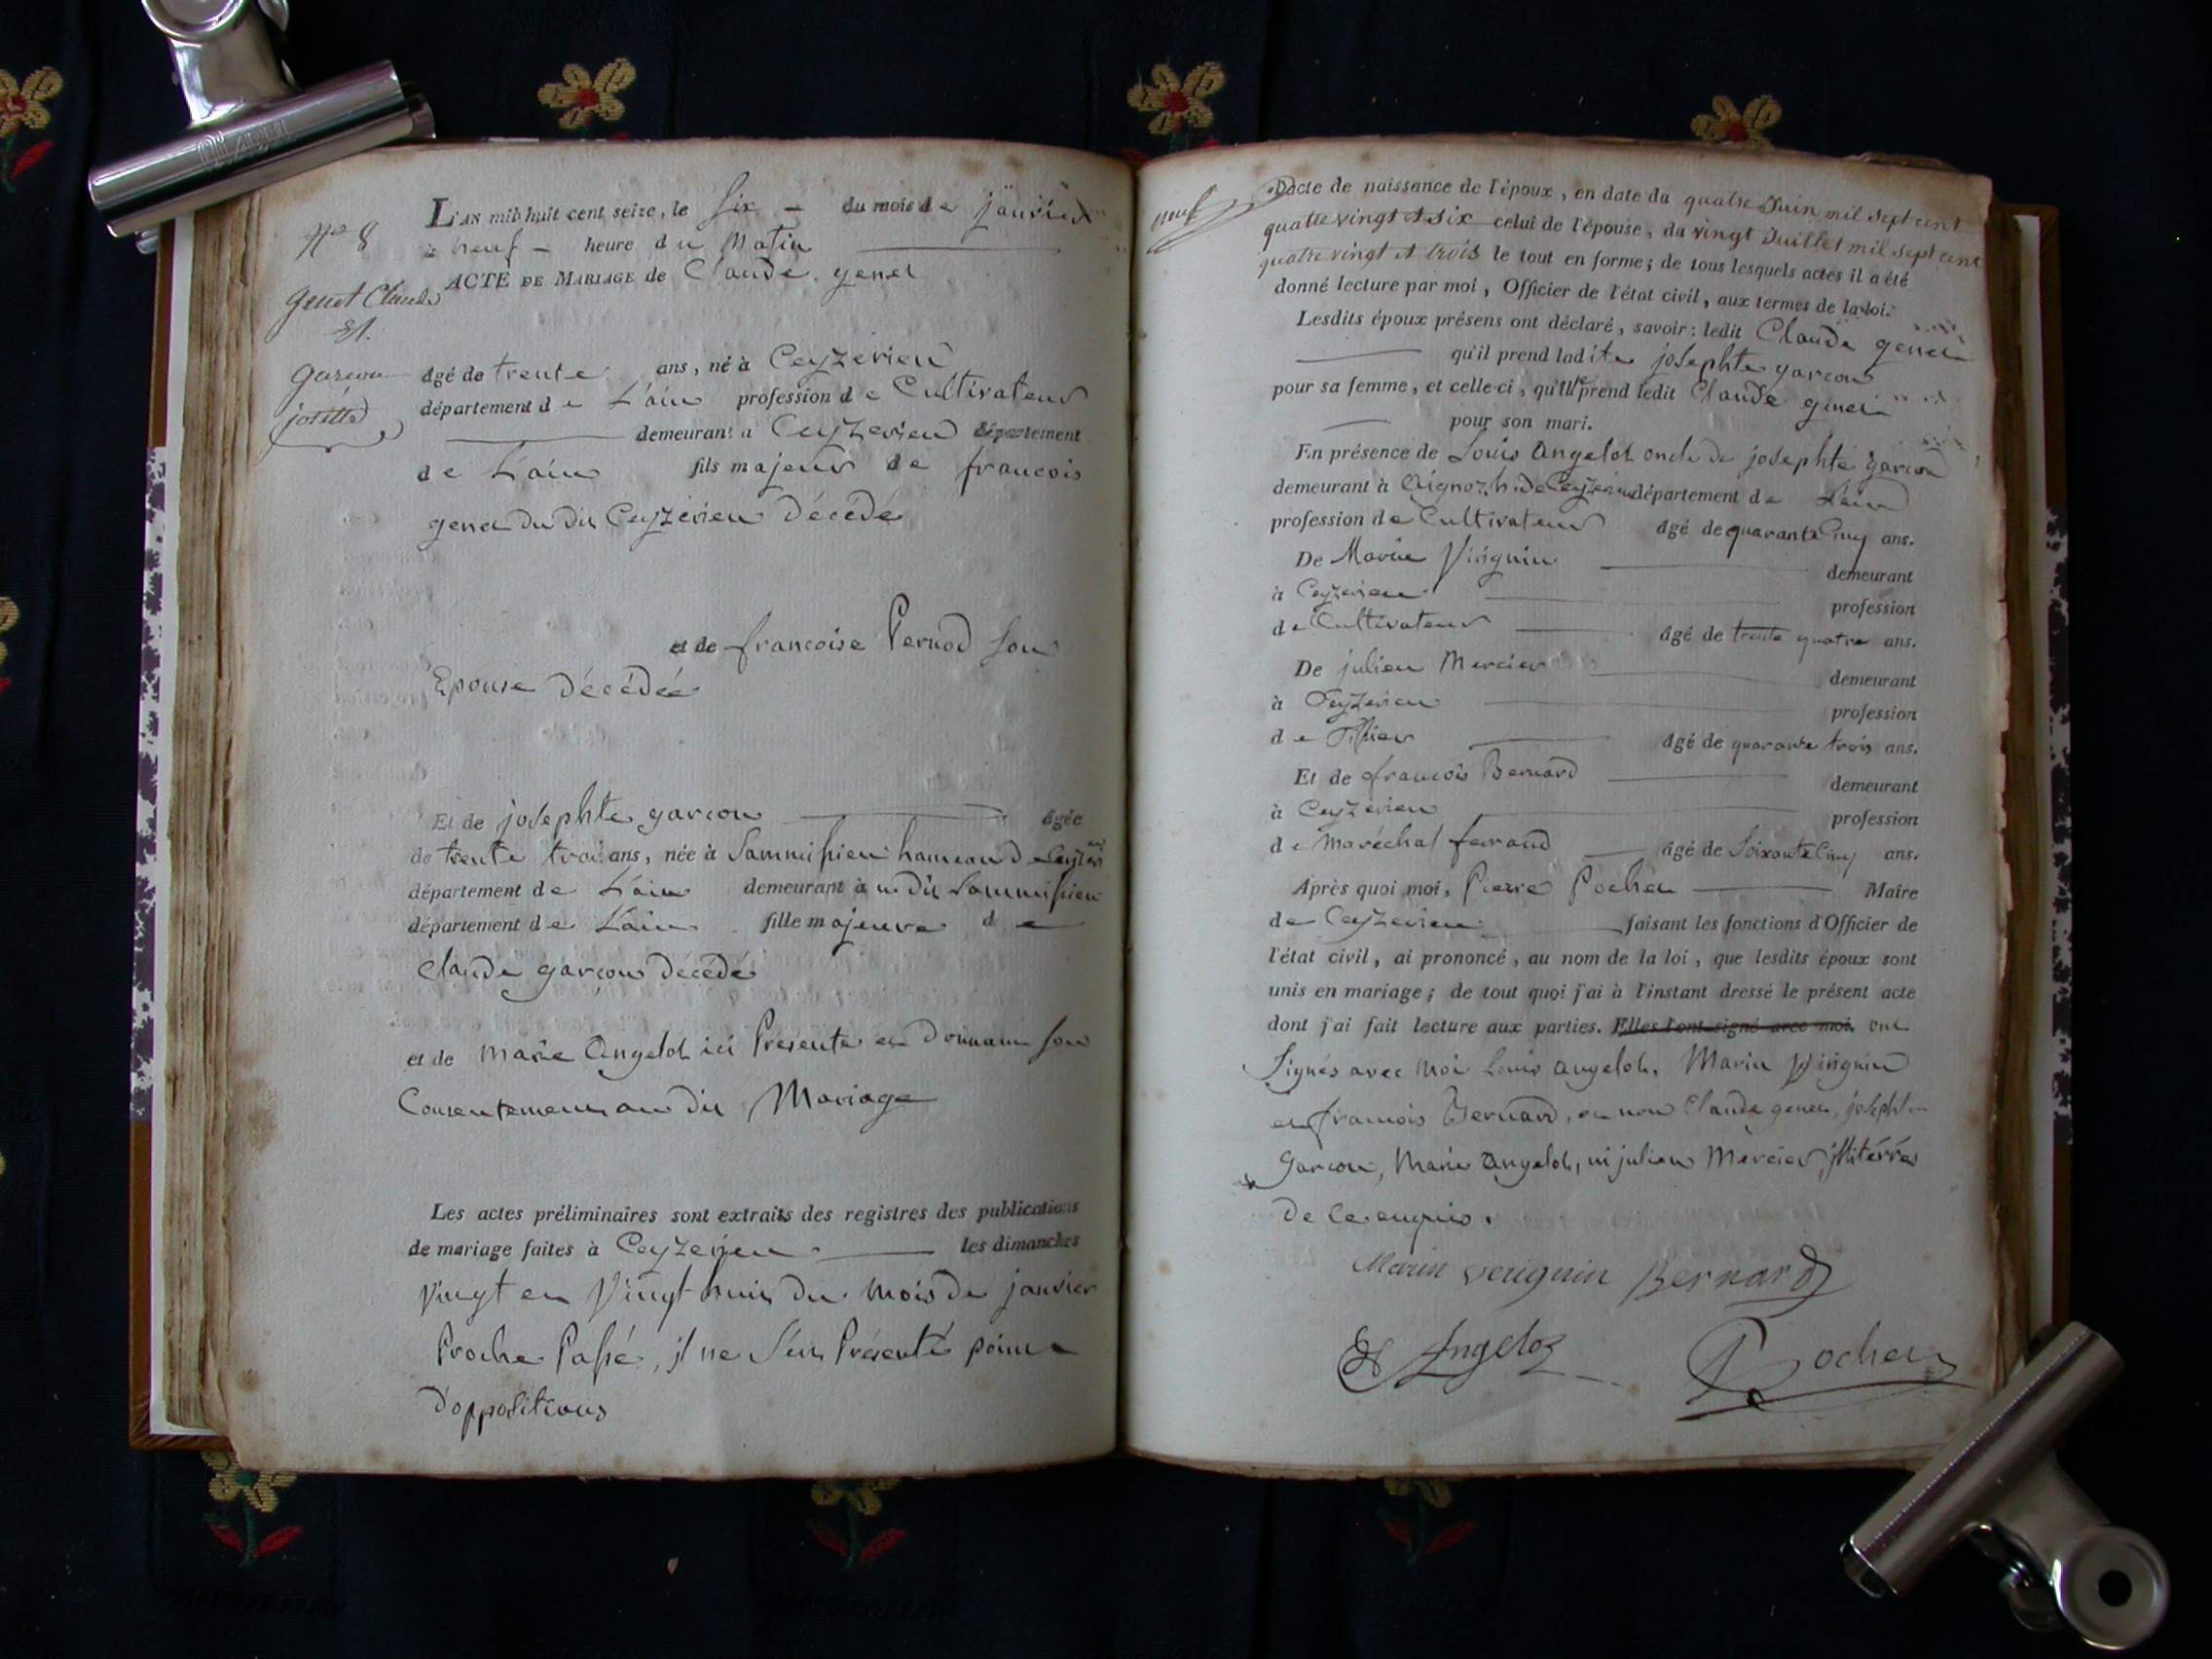 L'an mil huit cent seize, le Six du mois de janvier
N° 8
à neuf heure du Matin
ACTE DE MARIAGE de Claude genet
Genet Claude
et
garcon
josette
âgé de trente ans, né à Ceyzerieu
département de L'ain profession de Cultivateur
demeurant à Ceyzerieu département
de L'ain fils majeur de francois
genet du dit Ceyzerieu Décédé
et de francoise Pernod Son
Epouse Décédée
Et de josephte garcon âgée
de trente trois ans, née à Sammissieu hameau de Ceyzerieu
département de L'ain demeurant à u dit Sammissieu
département de L'ain fille majeure de
Claude garçon Décédé
et de marie Angelot ici Présente et Donnant Son
Consentement au dit Mariage
Les actes préliminaires sont extraits des registres des publications
de mariage faites à Ceyzerieu les dimanches
Vingt et Vingt huit du mois de janvier
Proche Passé, il ne S'est Présenté point
D'oppositions
neuf
D'acte de naissance de l'époux, en date du quatre Juin mil sept cent
quatre vingt et six celui de l'épouse, du vingt Juillet mil sept cent
quatre vingt et trois le tout en forme; de tous lesquels actes il a été
donné lecture par moi, Officier de l'état civil, aux termes de la loi.
Lesdits époux présens ont déclaré, savoir: ledit Claude genet
qu'il prend ladite josephte garcon
pour sa femme, et celle-ci, qu'elle prend ledit Claude genet
pour son mari.
En présence de Louis Angelot oncle de josephte garcon
demeurant à Aignoz h. de Ceyzerieu département de L'ain
profession de Cultivateur âgé de quarante Cinq ans.
De Marin Virignin demeurant
à Ceyzerieu profession
de Cultivateur âgé de trente quatre ans.
De julien Mercier demeurant
à Ceyzerieu profession
de Tissier âgé de quarante trois ans.
Et de francois Bernard demeurant
à Ceyzerieu profession
de Maréchal ferrand âgé de Soixante Cinq ans.
Après quoi moi, Pierre Pochet Maire
de Ceyzerieu faisant les fonctions d'Officier de
l'état civil, ai prononcé, au nom de la loi, que lesdits époux sont
unis en mariage; de tout quoi j'ai à l'instant dressé le présent acte
dont j'ai fait lecture aux parties. Elles l'ont signé avec moi. ont
Signés avec moi Louis angelot, Marin Virignin
et francois Bernard, et non Claude genet, josephte
Garcon, Marie angelot, ni julien Mercier, illitérés
De ce enquis.
Marin verignin Bernard
Angeloz Pochet